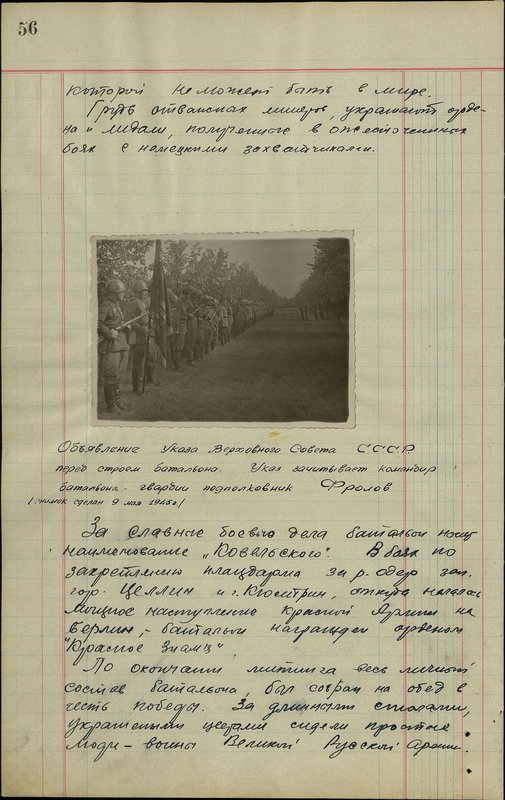 56
которой не может быть в мире.
Грудь отважных минеров, украшают орде-
на и медали, полученные в ожесточенных
боях с немецкими захватчиками.
Объявление Указа Верховного Совета СССР
перед строем батальона. Указ зачитывает командир
батальона - гвардии подполковник Фролов
/снимок сделан 9 мая 1945 г/
За славные боевые дела батальон носит
наименование „Ковельского". В боях по
закреплению плацдарма за р. Одер зап.
гор. Целлин и г. Кюстрин, откуда началось
мощное наступление Красной Армии на
Берлин, - батальон награжден орденом
"Красное Знамя"
По окончании митинга весь личный
состав батальона, был собран на обед в
честь победы. За длинными столами,
украшенными цветами сидели простые
люди - воины Великой Русской Армии.